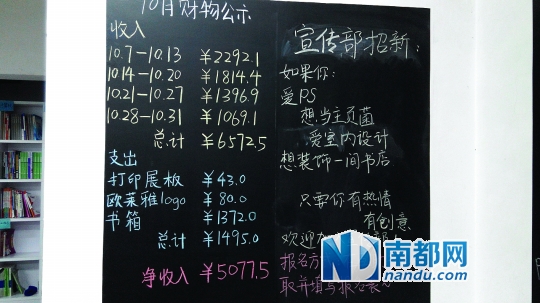 10月财物公示
收入
10.7—10.13 ￥2292.1
10.14—10.20 ￥1814.4
10.21—10.27 ￥1396.9
10.28—10.31 ￥1069.1
总计 ￥6572.5
支出
打印展板 ￥43.0
欧莱雅logo ￥80.0
书箱 ￥1372.0
总计 ￥1495.0
净收入 ￥5077.5
宣传部招新:
如果你:
爱PS
想当主页菌
爱室内设计
想装饰一间书店
只要你有热情
有创意
欢迎
报名方
取并填写报名表
ND 南都网
nandu.com